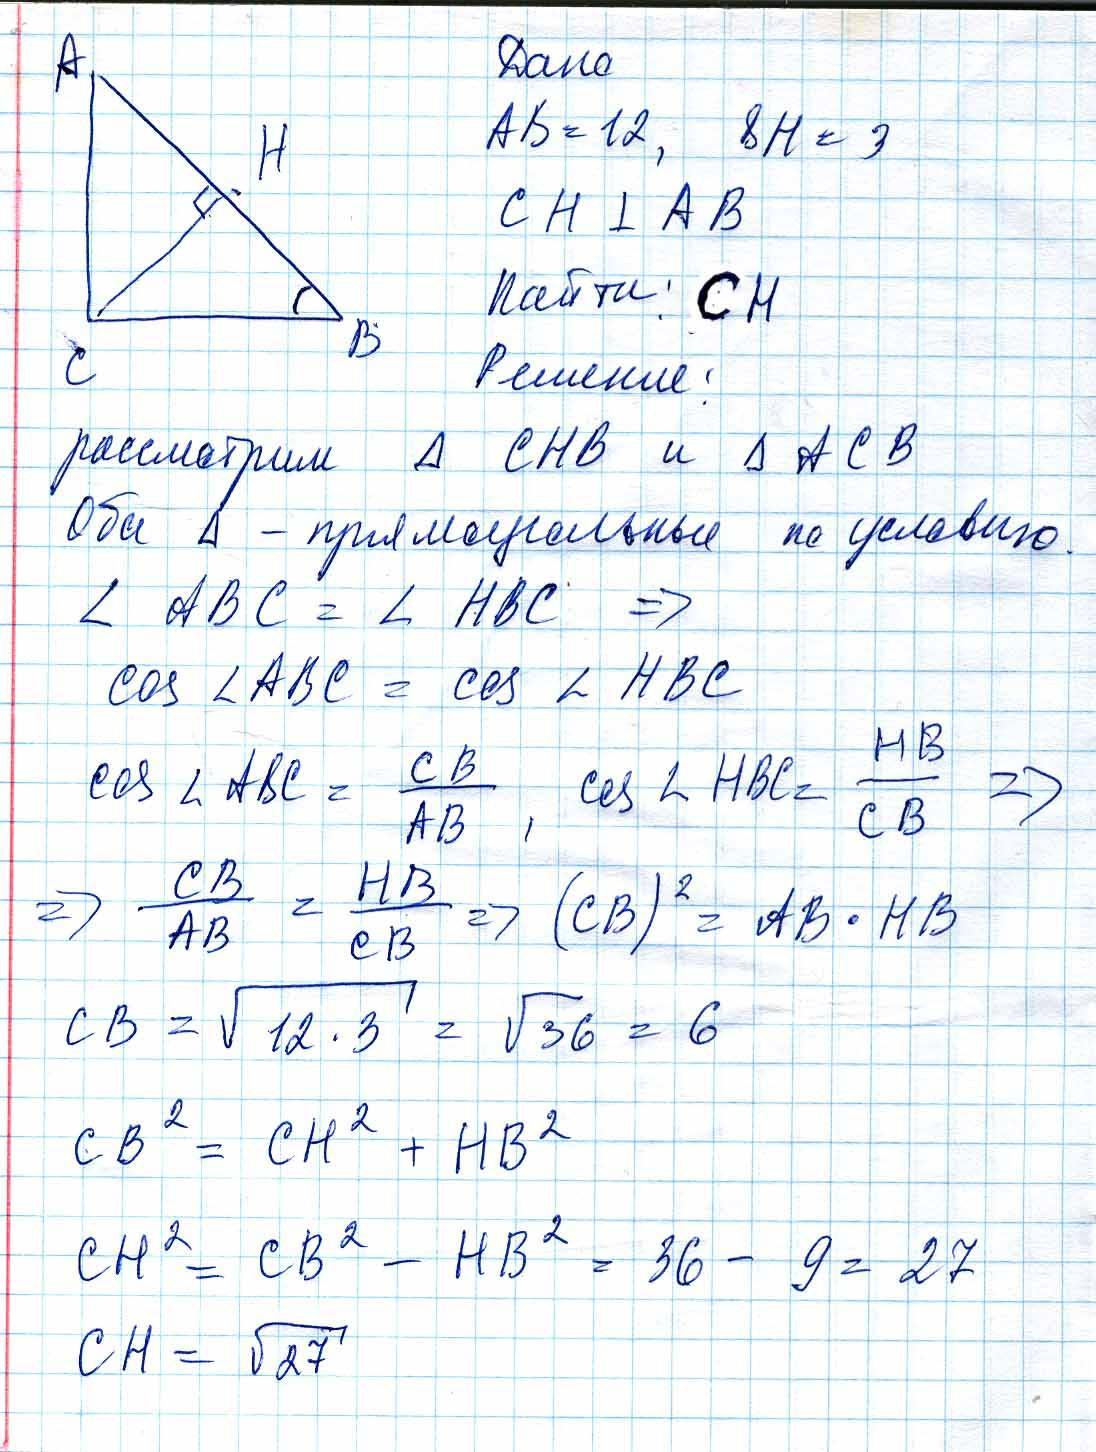 A
H
B
C
Дано
AB = 12, BH = 3
CH ⊥ AB
Найти: CH
Решение:
рассмотрим Δ CHB и Δ ACB
Оба Δ - прямоугольные по условию.
∠ ABC = ∠ HBC =>
cos ∠ABC = cos ∠ HBC
cos ∠ ABC = CB/AB, cos ∠ HBC = HB/CB =>
=> CB/AB = HB/CB => (CB)² = AB · HB
CB = √12 · 3 = √36 = 6
CB² = CH² + HB²
CH² = CB² - HB² = 36 - 9 = 27
CH = √27